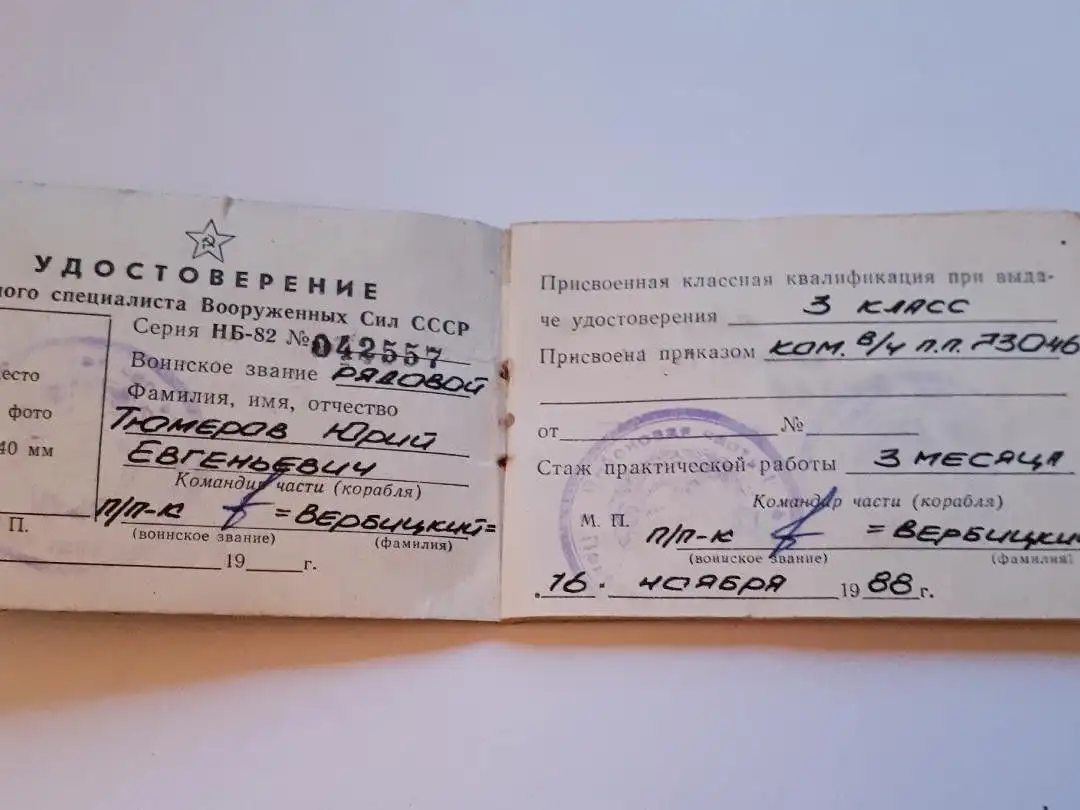 УДОСТОВЕРЕНИЕ
специалиста Вооруженных Сил СССР
Серия НБ-82 № 042557
Воинское звание РЯДОВОЙ
Фамилия, имя, отчество
Тюмеров Юрий
Евгеньевич
Командир части (корабля)
п/п-к =Вербицкий=
(воинское звание) (фамилия)
19 г.
фото
40 мм
П.
Присвоенная классная квалификация при выда-
че удостоверения 3 КЛАСС
Присвоена приказом КОМ. В/Ч П.П. 73046
от №
Стаж практической работы 3 МЕСЯЦА
Командир части (корабля)
М. П. п/п-к =ВЕРБИЦКИ
(воинское звание) (фамилия)
16. НОЯБРЯ 1988 г.